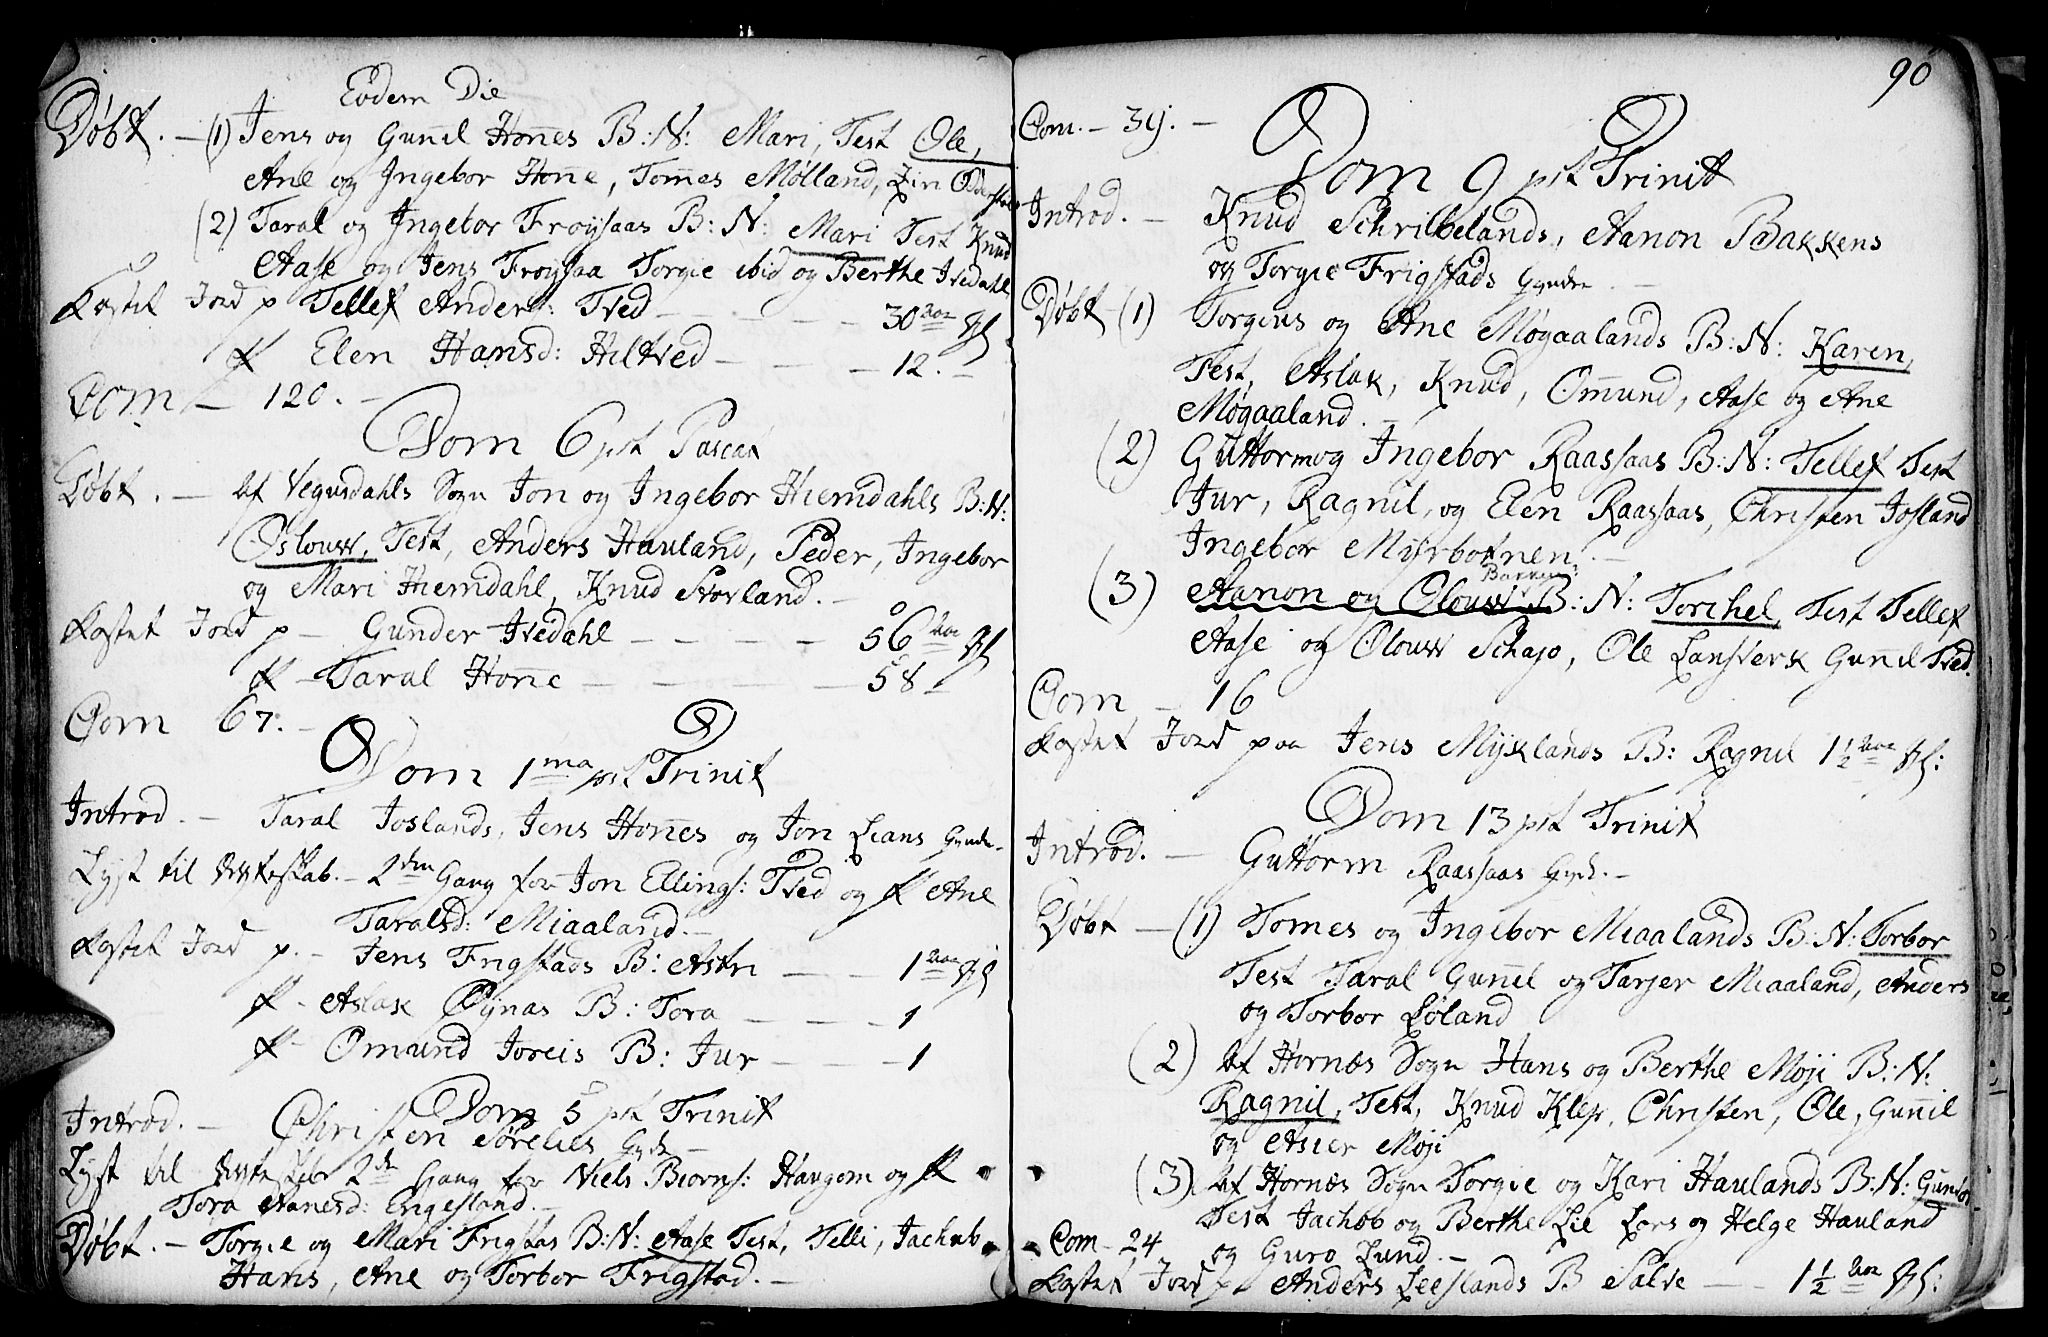 Eodem Die
Døbt. – (1) Jens og Gunnil Honnes B: N: Mari, Test Ole,
Ane og Ingebor Honne, Tomes Mølland,
(2) Taral og Ingebor Frøysaas B: N: Mari Test Knud
Aase og Jens Frøysaa Torgie ibid og Berthe Ivedahl
Kastet Jord p Tellef Anders: Tved – 30 Aar Gl
– Elen Hansd: Hiltved – 12. –
Com – 120. –
Dom 6 pst Pascat
Døbt. – Af Vegusdahls Sogn Jon og Ingebor Hiemdahls B: N:
Oslouw, Test, Anders Hauland, Peder, Ingebor
og Mari Hiemdahl, Knud Storland. –
Kastet Jord p – Gunder Ivedahl – 56 Aar Gl
– Taral Honne – 58 –
Com 67. –
Dom 1ma pst Trinit
Introd. – Taral Joslands, Jens Honnes og Jon Lians
Lyst til Ægteskab. – 2den Gang for Jon Ellings: Tved og Ane
Taralsd: Miaaland. –
Kastet Jord p. – Jens Frigstads B: Astri – 1 Aar Gl
– Aslak Oynas B: Tora – 1
– Omund Joreis B: Jur – 1
Dom 5 pst Trinit
Introd. – Christen Sørelies –
Lyst til 2den Gang for Niels Biorns: Haugom og
Tora Aanesd: Engesland. –
Døbt. – Torgie og Mari Frigstas B: N: Aase Test, Telli, Jachob
Hans, Ane og Torbor Frigstad. –
90
Com. – 39. –
Dom 9 pst Trinit
Introd. – Knud Schribelands, Aanon Bakkens
og Torgie Frigstads –
Døbt – (1) Torgius og Ane Møgaalands B: N: Karen,
Test, Aslak, Knud, Omund, Aase og Ane
Møgaaland. –
(2) Guttorm og Ingebor Raassaas B: N: Tellef Test
Jur, Ragnil, og Elen Raassaas, Christen Josland
Ingebor Myrbotnen. –
Bakken
(3) Aanon og Olouw B: N: Torchel, Test Tellef
Aase og Olouw Schajo, Ole Lansverk Gunnil Tved.
Com – 16
Kastet Jord paa Jens Myklands B: Ragnil 1 1/2 Aar Gl:
Dom 13 pst Trinit
Introd. – Guttorm Raassaas –
Døbt – (1) Tomes og Ingebor Miaalands B: N: Torbor
Test Taral Gunnil og Tarjer Miaaland, Anders
og Torbor Løland
(2) Af Hornæs Sogn Hans og Berthe Moji B: N:
Ragnil, Test, Knud Klep, Christen, Ole, Gunnil
og Asier Moji
(3) Af Hornæs Sogn Torgie og Kari Haulands B: N: Gunder
Test Jachob og Berthe Lie Lars og Helge Hauland
Com – 24 og Guro Lund. –
Kastet Jord p Anders Leeslands B Salve – 1 1/2 Aar Gl: